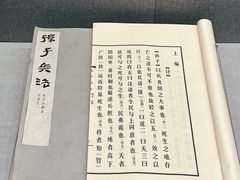 孫子兵法
上編
【計】
【孫子】曰兵者國之大事也。死生之地存
亡之道不可不察也故經之以五效之以
一曰道二曰天三曰
地四曰將五曰法道者令民與上同意者也
故可與之死可與之生民弗詭也。天者
陰陽寒暑時制也順逆兵勝也。地者高下
廣陝遠近險易死生也。將者知(智)